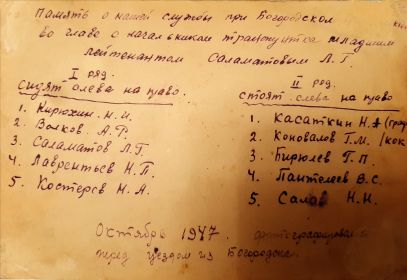 Память о нашей службы при Богородском
во главе с начальником транспункта младшим
лейтенантом Саламатовым Л.Г.
I ряд.
сидят слева на право
1. Кирюхин. Н. И.
2. Волков А. Ф.
3. Саламатов Л. Г
4. Лаврентьев Н. П.
5. Костерев Н. А.
II ряд.
стоят слева на право
1. Касаткин Н. А
2. Коновалов Г. М. (кок
3. Бирюлев Г. П.
4. Пантелеев В. С.
5. Салов Н. Н.
Октябрь 1947.
перед уездом из Богородска.